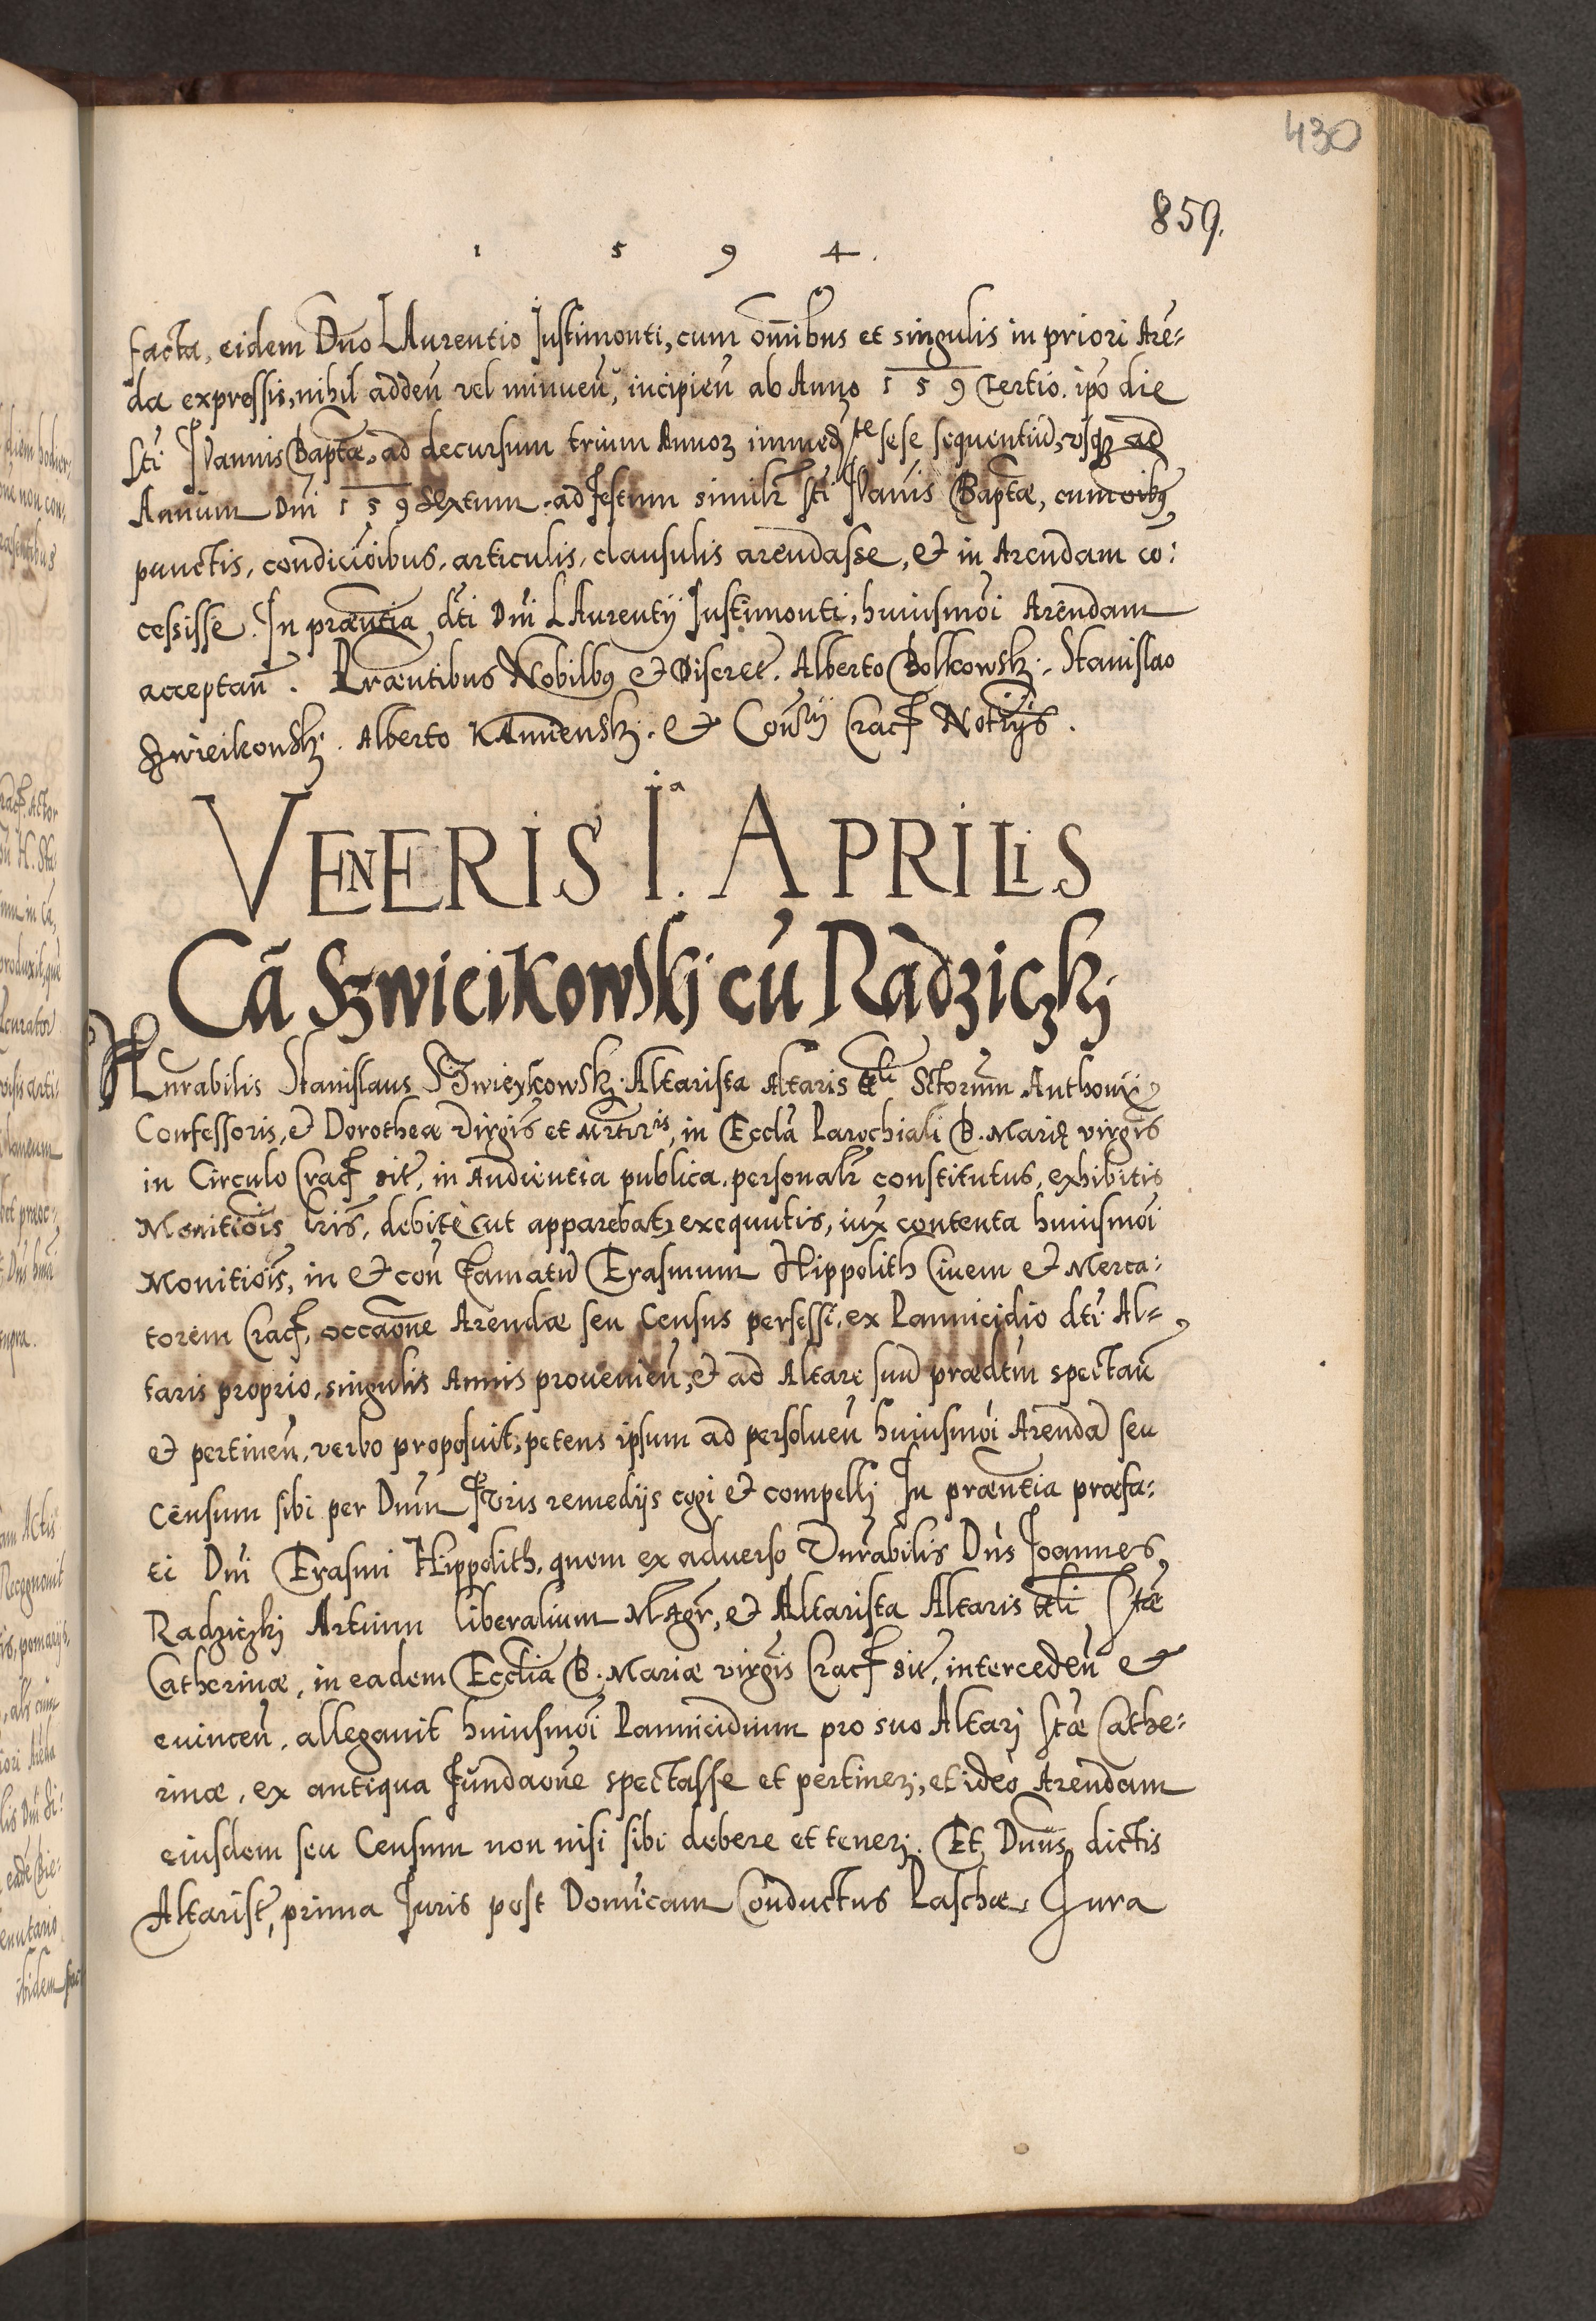 430
859.
1 5 9 4.
facta, eidem Dno LAurentio Justimonti, cum omībus et singulis in priori Arē-
da expressis, nihil addeñ vel minueñ, incipieñ ab Anno 1 5 9 tertio. ipō die
Sti Joannis Baptæ, ad decursum trium Annoꝝ immedte sese sequentiū, usqꝫ ad
Annum Dni 1 5 9 Sextum. ad festum similr̃ Sti Joānis Baptæ, cum oibꝰ
punctis, condiciōibus, articulis, clausulis arendasse, et in Arendam cō:
cessisse. In præntia dti Dni LAurentij Justimonti, huiusmōi Arendam
acceptañ. Præntibus Nobilbꝰ et Discret. Alberto Bolkowskj. Stanislao
Szwieikowskj. Alberto KAmienskj. et Conrij Cracꝭ Notrijs.
VENERIS Ia. APRILIS
Cā Szwieikowskj cū Radziczkj
HOnrabilis Stanislaus Szwieykowskj Altarista Altaris ttli Sctorum Anthonij
Confessoris, et Dorotheæ Virgis et Mrtiris, in Eccla Parochiali B. Mariæ virgis
in Circulo Cracꝭ sit, in Audientia publica personalr̃ constitutus, exhibitis
Monitiōis lris, debite ut apparebat exequutis, iux contenta huiusmōi
Monitiōis, in et coñ Famatū Erasmum Hippolith Ciuem et Merca:
torem Cracꝭ, occaōne Arendæ seu Census persessi, ex Pannicidio dti Al-
taris proprio, singulis Annis prouenieñ, et ad Altare suū prædtm spectañ
et pertineñ, verbo proposuit, petens ipsum ad persolueñ huiusmōi Arendā seu
Censum sibi per Dnm Juris remedijs cogi et compellj In præntia præfa:
ti Dni Erasmi Hippolith, quem ex aduerso Vnrabilis Dns Joannes
Radziczkj Artium liberalium MAgr, et Altarista Altaris ttli Stæ
Catherinæ, in eadem Ecclia B. Mariæ virgis Cracꝭ sit, intercedeñ et
euinceñ, allegauit huiusmōi Pannicidium pro suo Altarj Stæ Cathe:
rinæ, ex antiqua Fundaōne spectasse et pertinerj, et ideo Arendam
eiusdem seu Censum non nisi sibi debere et tenerj. Et Dnus dictis
Altarist, prima Juris post Domicam Conductus Paschæ, Jura